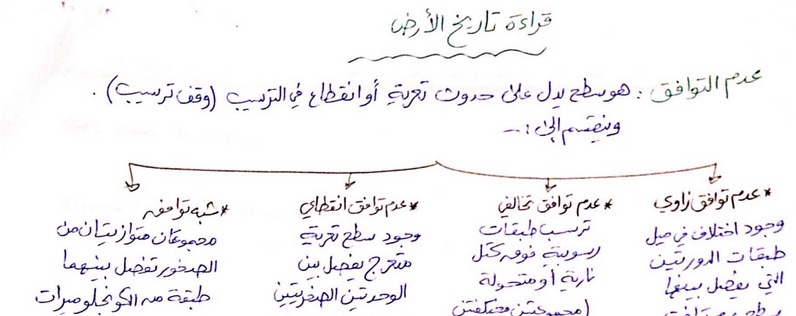 قراءة تاريخ الأرض
عدم التوافق : هو سطح يدل على حدوث تعرية أو انقطاع في الترسيب (وقف ترسيب) .
وينقسم إلى :-
* عدم توافق زاوي
وجود اختلاف في ميل
طبقات الدورتين
التي يفصل بينهما
* عدم توافق تخالفي
ترسب طبقات
رسوبية فوق كتل
نارية أو متحولة
(مجموعتين مختلفتين
* عدم توافق انقطاعي
وجود سطح تعرية
متعرج يفصل بين
الوحدتين الصخريتين
* شبه توافق
مجموعتان متوازيتان من
الصخور تفصل بينهما
طبقة من الكونجلوميرات